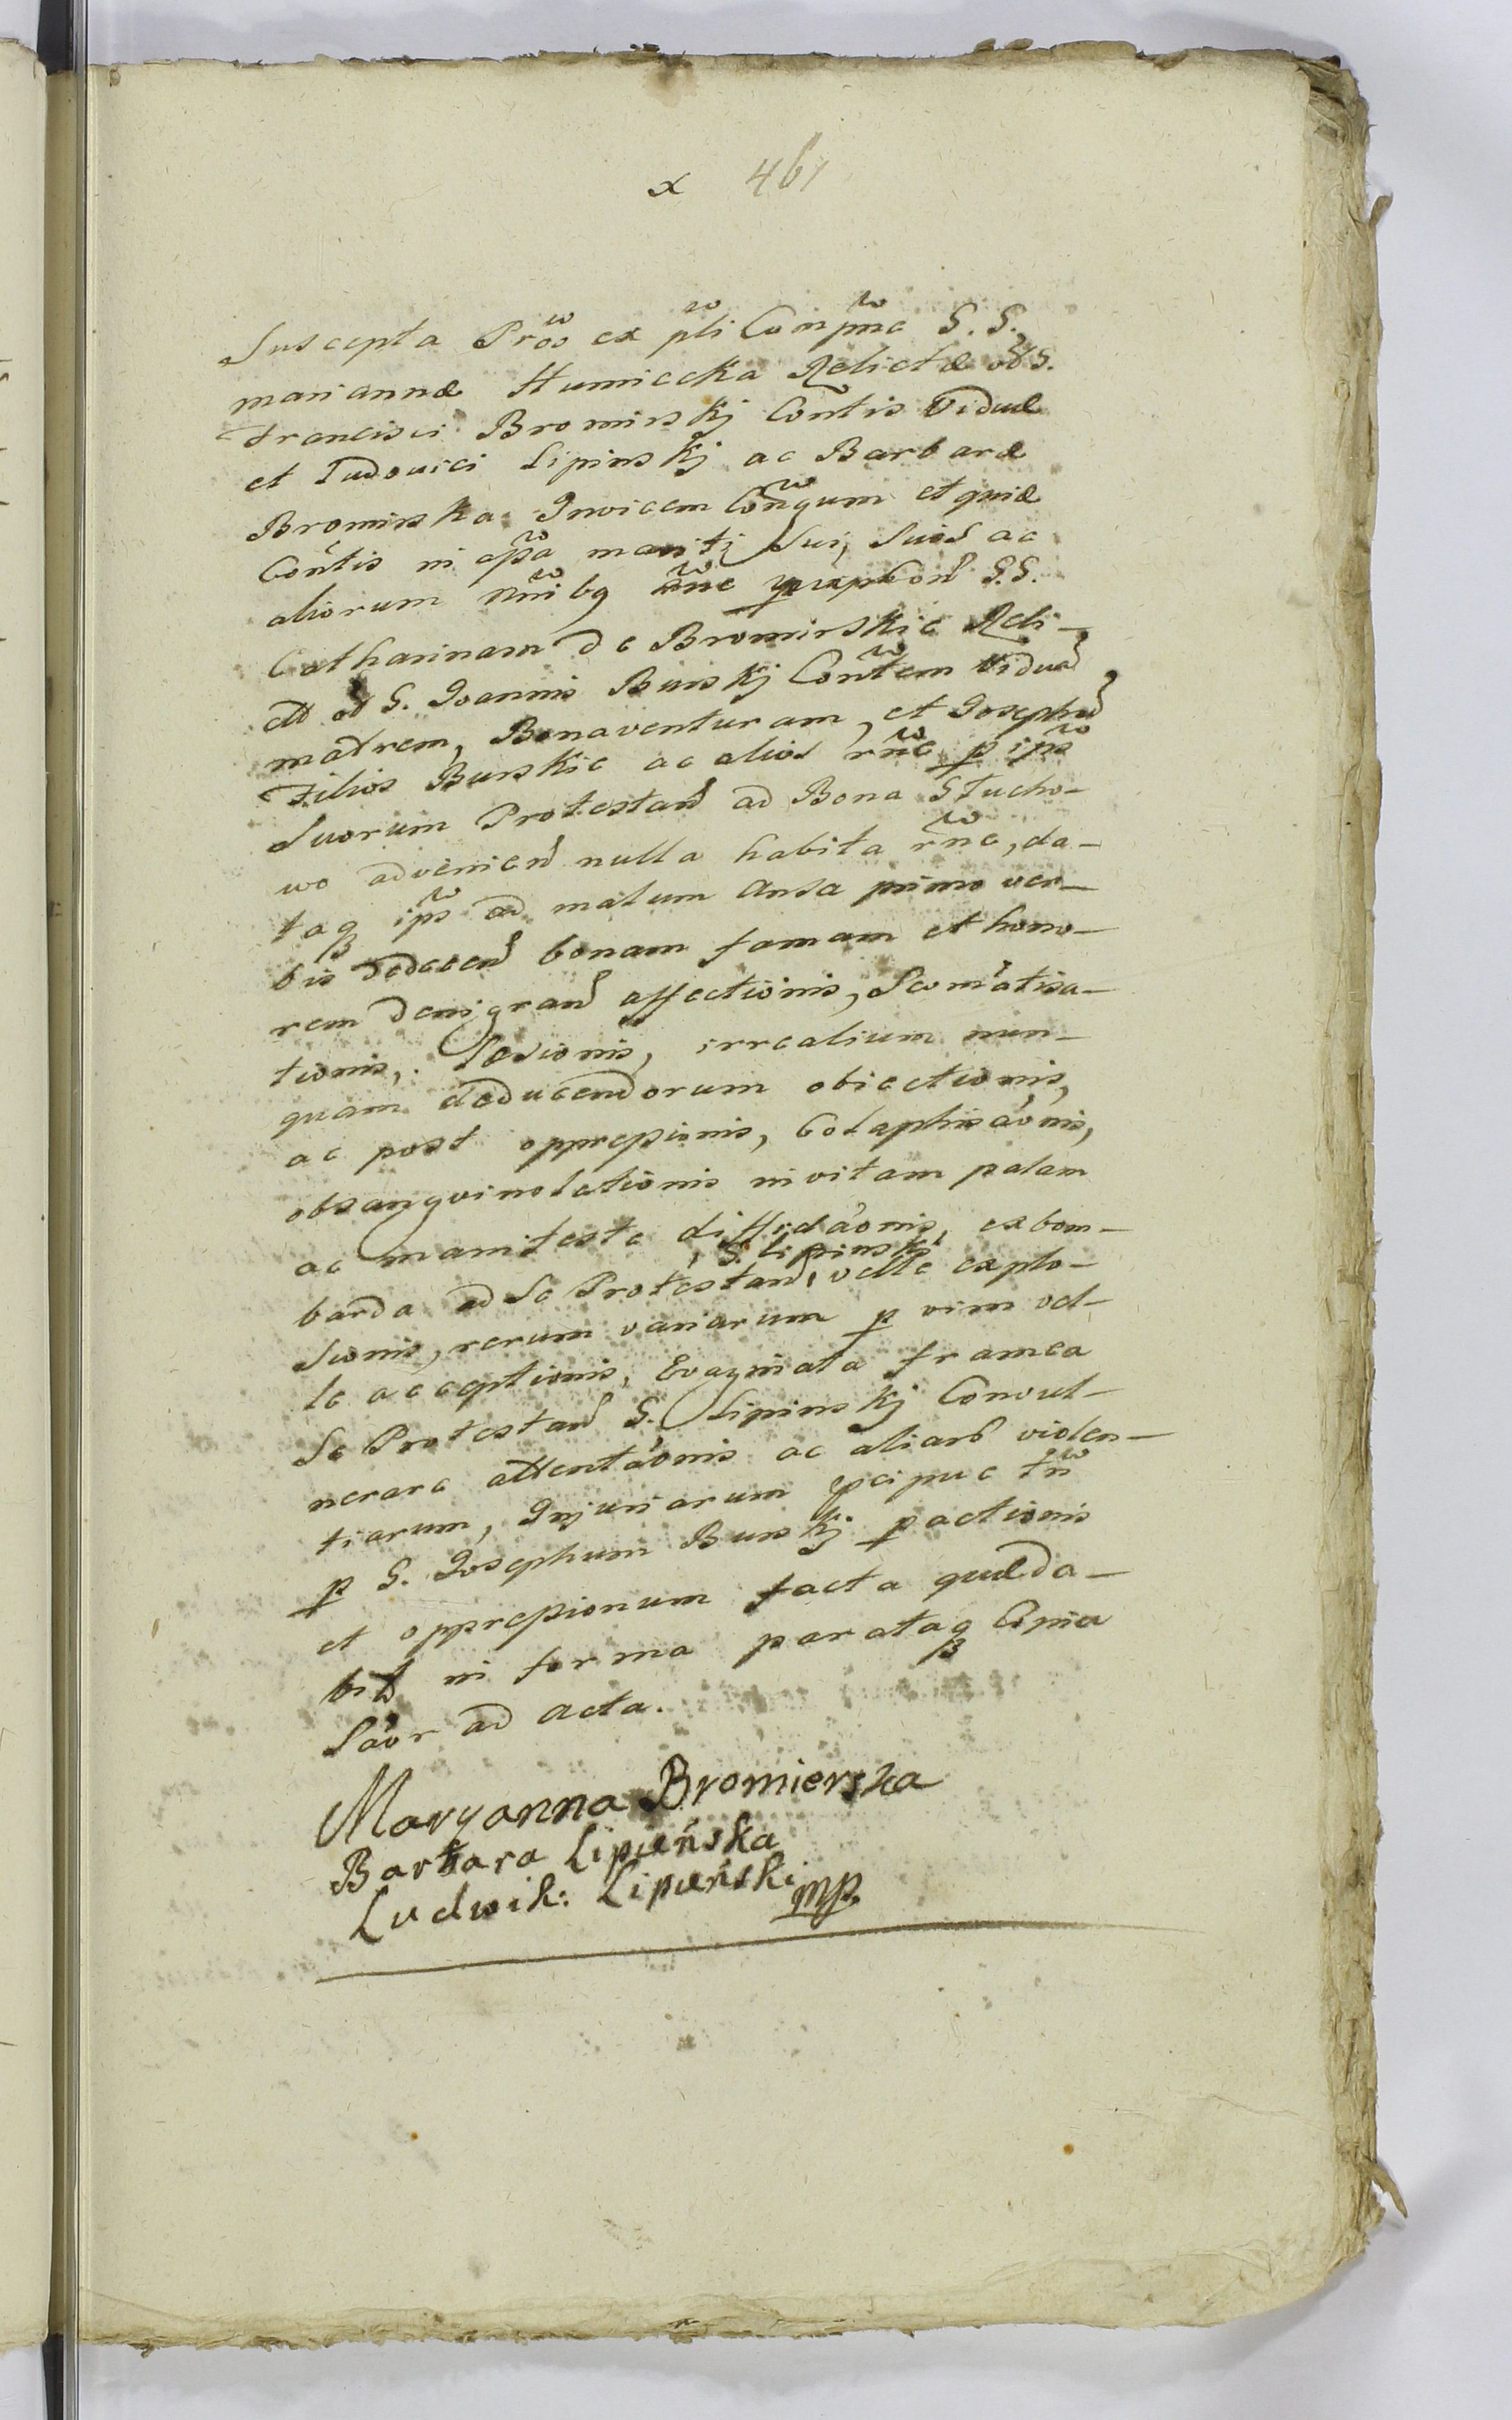 x 461
Suscepta Prõõ ex pľi Comp̃ne S. S.
mariannæ Humiecka Relictæ ol̃ S.
Francisci Bromirskj Cõntis Viduæ
et Ludovici Lipinskj ac Barbaræ
Bromirska Invicem Cõngum et quidẽ
Cõntis in aẽa mariti sui, suis ac
aliorum nñibg S.S.
Catharinam de Bromirskie Reli-
ctã ol̃ S. Joannis Burskj Cõntem Viduã
matrem, Bonaventuram, et Josephũ
Filios Burskie ac alios rñe p ips̃
Suorum Protestañ ad Bona Stucho-
wo advenieñ nulla habita rñe, da-
taq ips̃ ad malum Ansa primo ver-
bis dedeceñ bonam famam et hono-
rem denigrañ affectionis, Scom̃atisa-
tionis, læsionis, irrealium nun-
quam deducendorum obiectionis,
ac post oppressionis, Colaphisãonis,
obsangvinolationis in vitam palam
ac manifeste diffidãonis, exbom-
S. Lipinskj
barda ad Se Protestañ, velle explo-
sionis, rerum variarum p vim vel-
le acceptionis, Evaginata framea
Se Protestañ S. Lipinskj Convul-
nerare attentãonis ac aliarũ violen-
tiarum, Injuriarum p̃cipue tñ
p S. Josephum Burskj pactionis
et oppressionum facta quæ da-
bit̃ in forma parataq
sãor ad acta.
Maryanna Bromierska
Barbara Lipieńska
Ludwik: Lipieński mp.